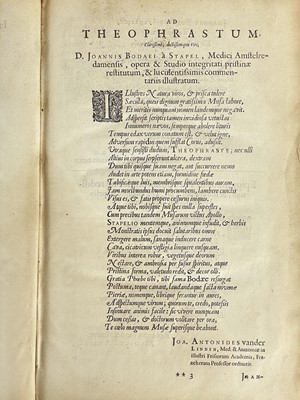 AD
THEOPHRASTUM,
Clarissimi, doctissimique viri,
D. JOANNIS BODAEI à STAPEL, Medici Amstelre-
damensis, opera & Studio integritati pristinæ
restitutum, & luculentissimis commen-
tariis illustratum.
Illustres Natura viros, & prisca tulere
Sæcula, queis dignum gratissima Musa labore,
Et meritis nunquam nomen laudemque negavit.
Ast scriptis tamen invidiosa vetustas
Innumeris nervos, semperque abolere
Tempus edax rerum conatum est, & velut igne,
Adversum rapidus quem sufflat Corus, adussit.
Utraque sensisti dudum, THEOPHRASTE, nec ulli
Altius in corpus serpserunt ulcera, dextram
Dum tibi quisque suam negat, aut succurrere nemo
Audet in arte potens etiam, formidine
Tabificæque luis, membrisque squalentibus auram,
Jam moribundus humi procumbens, lumine cunctis
Visus es, & fatis propere cessurus iniquis.
Atque tibi, nobisque fuit spes nulla superstes,
Cum precibus tandem Musarum victus Apollo,
STAPELIO mentemque, animumque insudit, & herbis
Monstratis ipsum docuit salutaribus omne
Extergere malum, sanaque inducere carne
Cava, cicatricum vestigia linquere
Viribus interea robur, vegetusque deorsum
Nectare, & ambrosia per fusus spiritus, atque
Pristina forma, valetudo redit, & decor olli.
Gratia Phœbo tibi, tibi fama Bodææ resurgat
Posthuma, teque canant, laudandaque facta nivome
Pieriæ, nomenque, librique ferantur in auras,
Aspectumque virum; quorum te, credo, potesset
Insonare animis facile; se vivere nunquam
Dum cessas, & doctorum volitare per ora,
Te cœlo magnum Musæ superisque beabunt.
JOA. ANTONIDES vander
LINDEN, Med. & Anatom. in
illustri Frisiorum Academia, Fra-
nekerana Professor ordinari⁹.
** 3